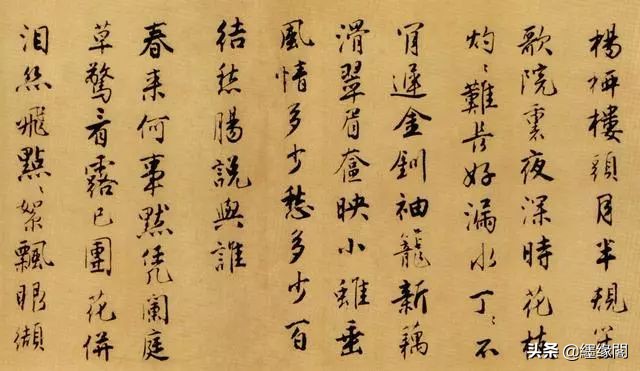 楊柳樓頭月半規笙
歌院裏夜深時花枝
灼灼難長好漏水丁丁不
肯遲金釧袖籠新藕
滑翠眉奩映小蛾垂
風情多少愁多少百
結愁腸說與誰
春來何事默凭闌庭
草驚看露已團花併
泪絲飛點點絮飄眼纈
头条 @纆缘閣